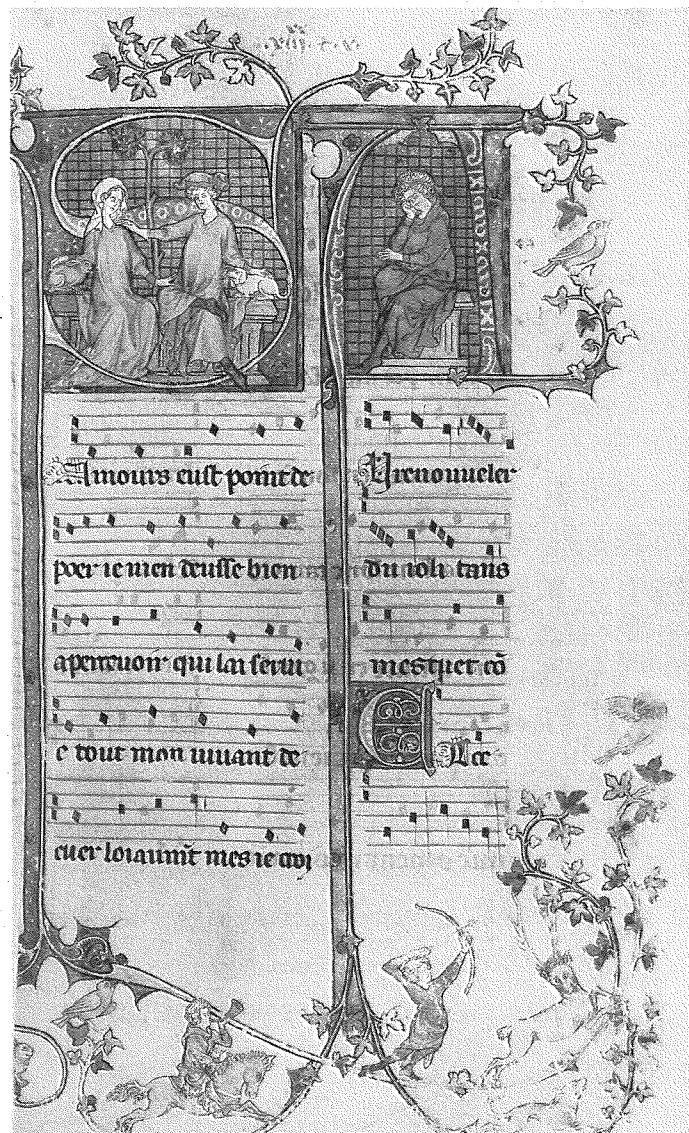 SAmours eust point de
poer ie men deusse bien
aperceuoir qui lai serui
e tout mon uiuant de
cuer loiaumt̄ mes ie croi
AU renouueler
du ioli tans
mestuet cō
Ecce